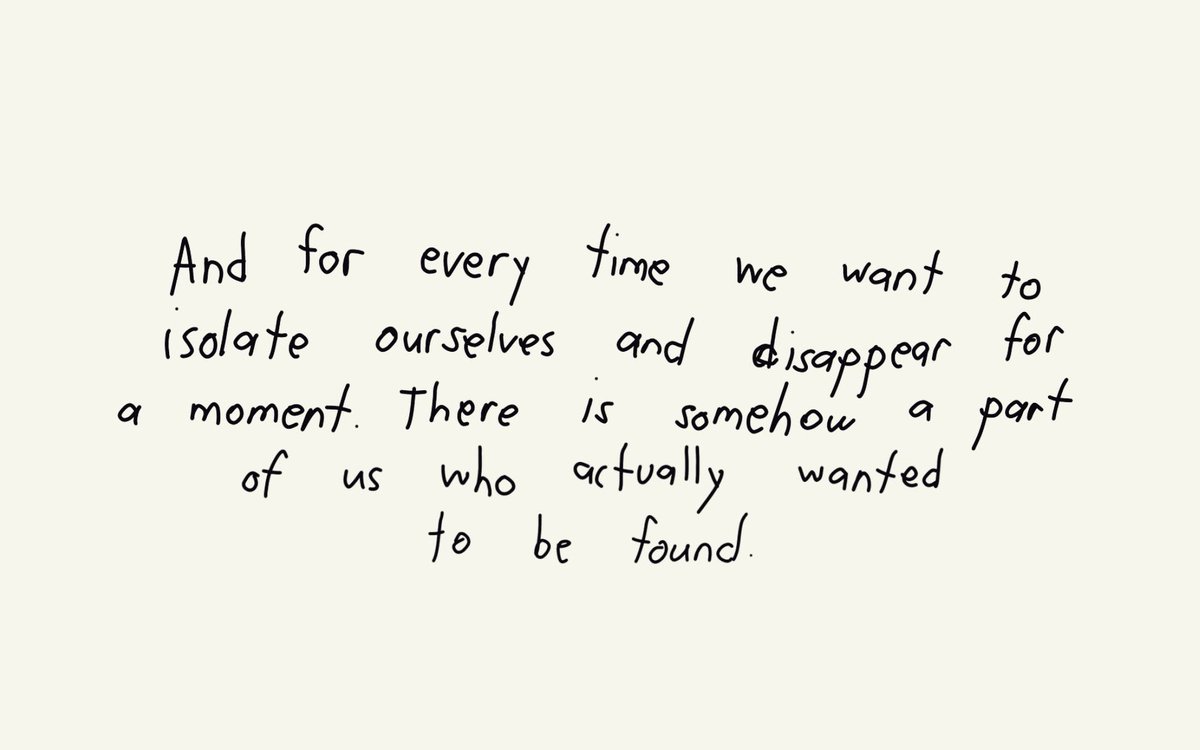 And for every time we want to
isolate ourselves and disappear for
a moment. There is somehow a part
of us who actually wanted
to be found.